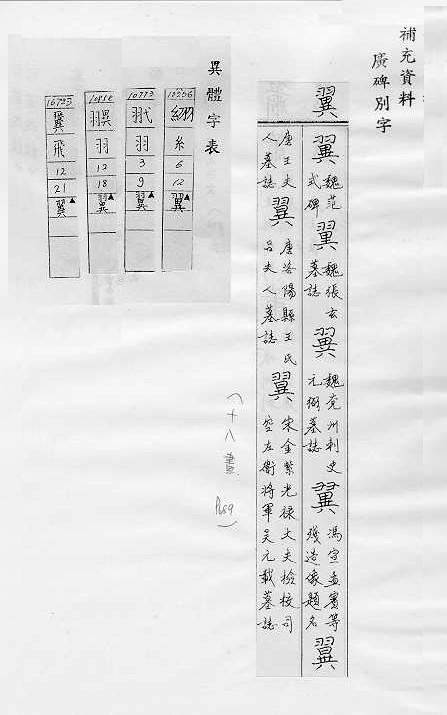 補充資料
廣碑別字
翼
翼 魏范式碑 翼 魏張玄墓誌 翼 魏兗州刺史元弼墓誌 翼 馮宣孟賓等殘造像題名 翼
唐王夫人墓誌 翼 唐洛陽縣王氏呂夫人墓誌 翼 宋金紫光祿大夫檢校司空左衛將軍吳元載墓誌
(十八畫 P.689)
異體字表
糸
6
12
翼▲
10773
羽
3
9
翼▲
羽
12
18
翼▲
飛
12
21
翼▲